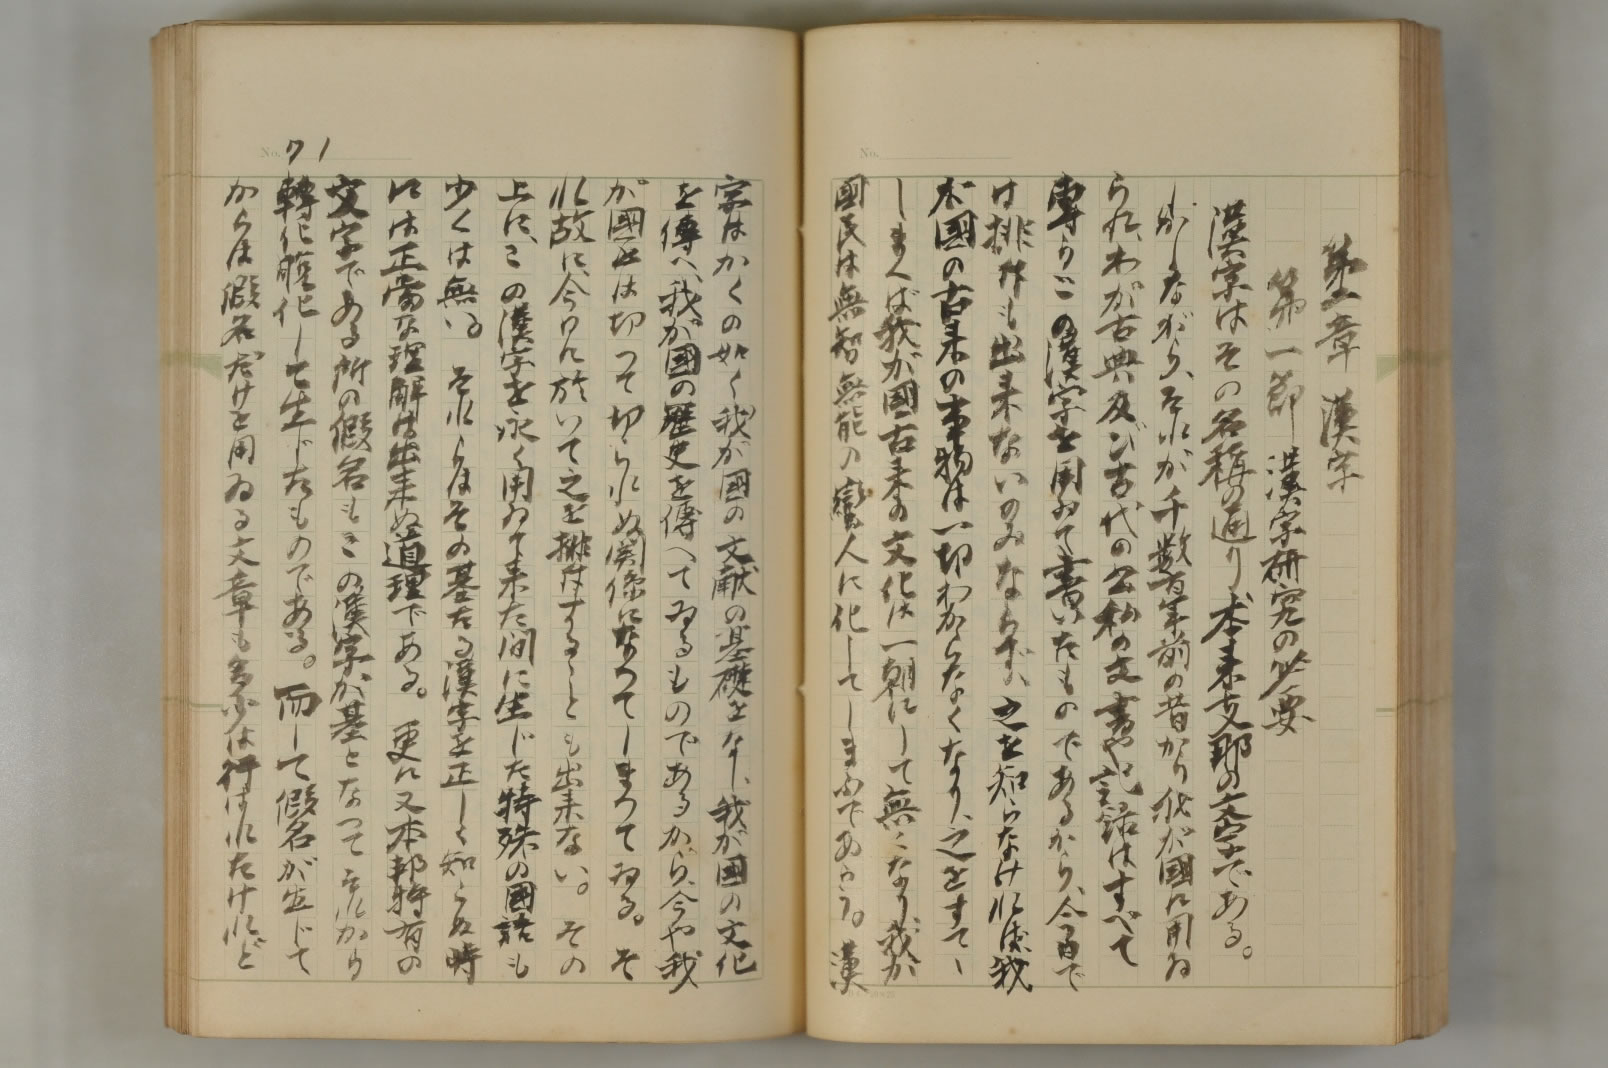 第二章 漢字
第一節 漢字研究の必要
漢字はその名稱の通り、本来支那の文字である。
しかしながら、それが千数百年前の昔から我が國に用ゐ
られ、わが古典及び古代の公私の文書や記録はすべて
専らこの漢字を用ゐて書いたものであるから、今日で
は排斥も出来ないのみならず、之を知らなければ我
が國の古来の事物は一切わからなくなり、之をすてゝ
しまへば我が國古来の文化は一朝にして無くなり、我が
國民は無智無能の蠻人に化してしまふであらう。漢
No. 71
字はかくの如く我が國の文献の基礎をなし、我が國の文化
を傳へ、我が國の歴史を傳へてゐるものであるから、今や我
が國とは切つて切られぬ関係になつてしまつてゐる。そ
れ故に、今日に於いて之を排斥することも出来ない。その
上に、この漢字を永く用ゐて来た間に生じた特殊の國語も
少くは無い。それらはその基たる漢字を正しく知らぬ時
には正當な理解は出来ぬ道理である。更に又本邦特有の
文字である所の假名もこの漢字が基となつてそれから
轉化脱化して生じたものである。而して假名が生じて
からは假名だけを用ゐる文章も多少は行はれたけれど
No.